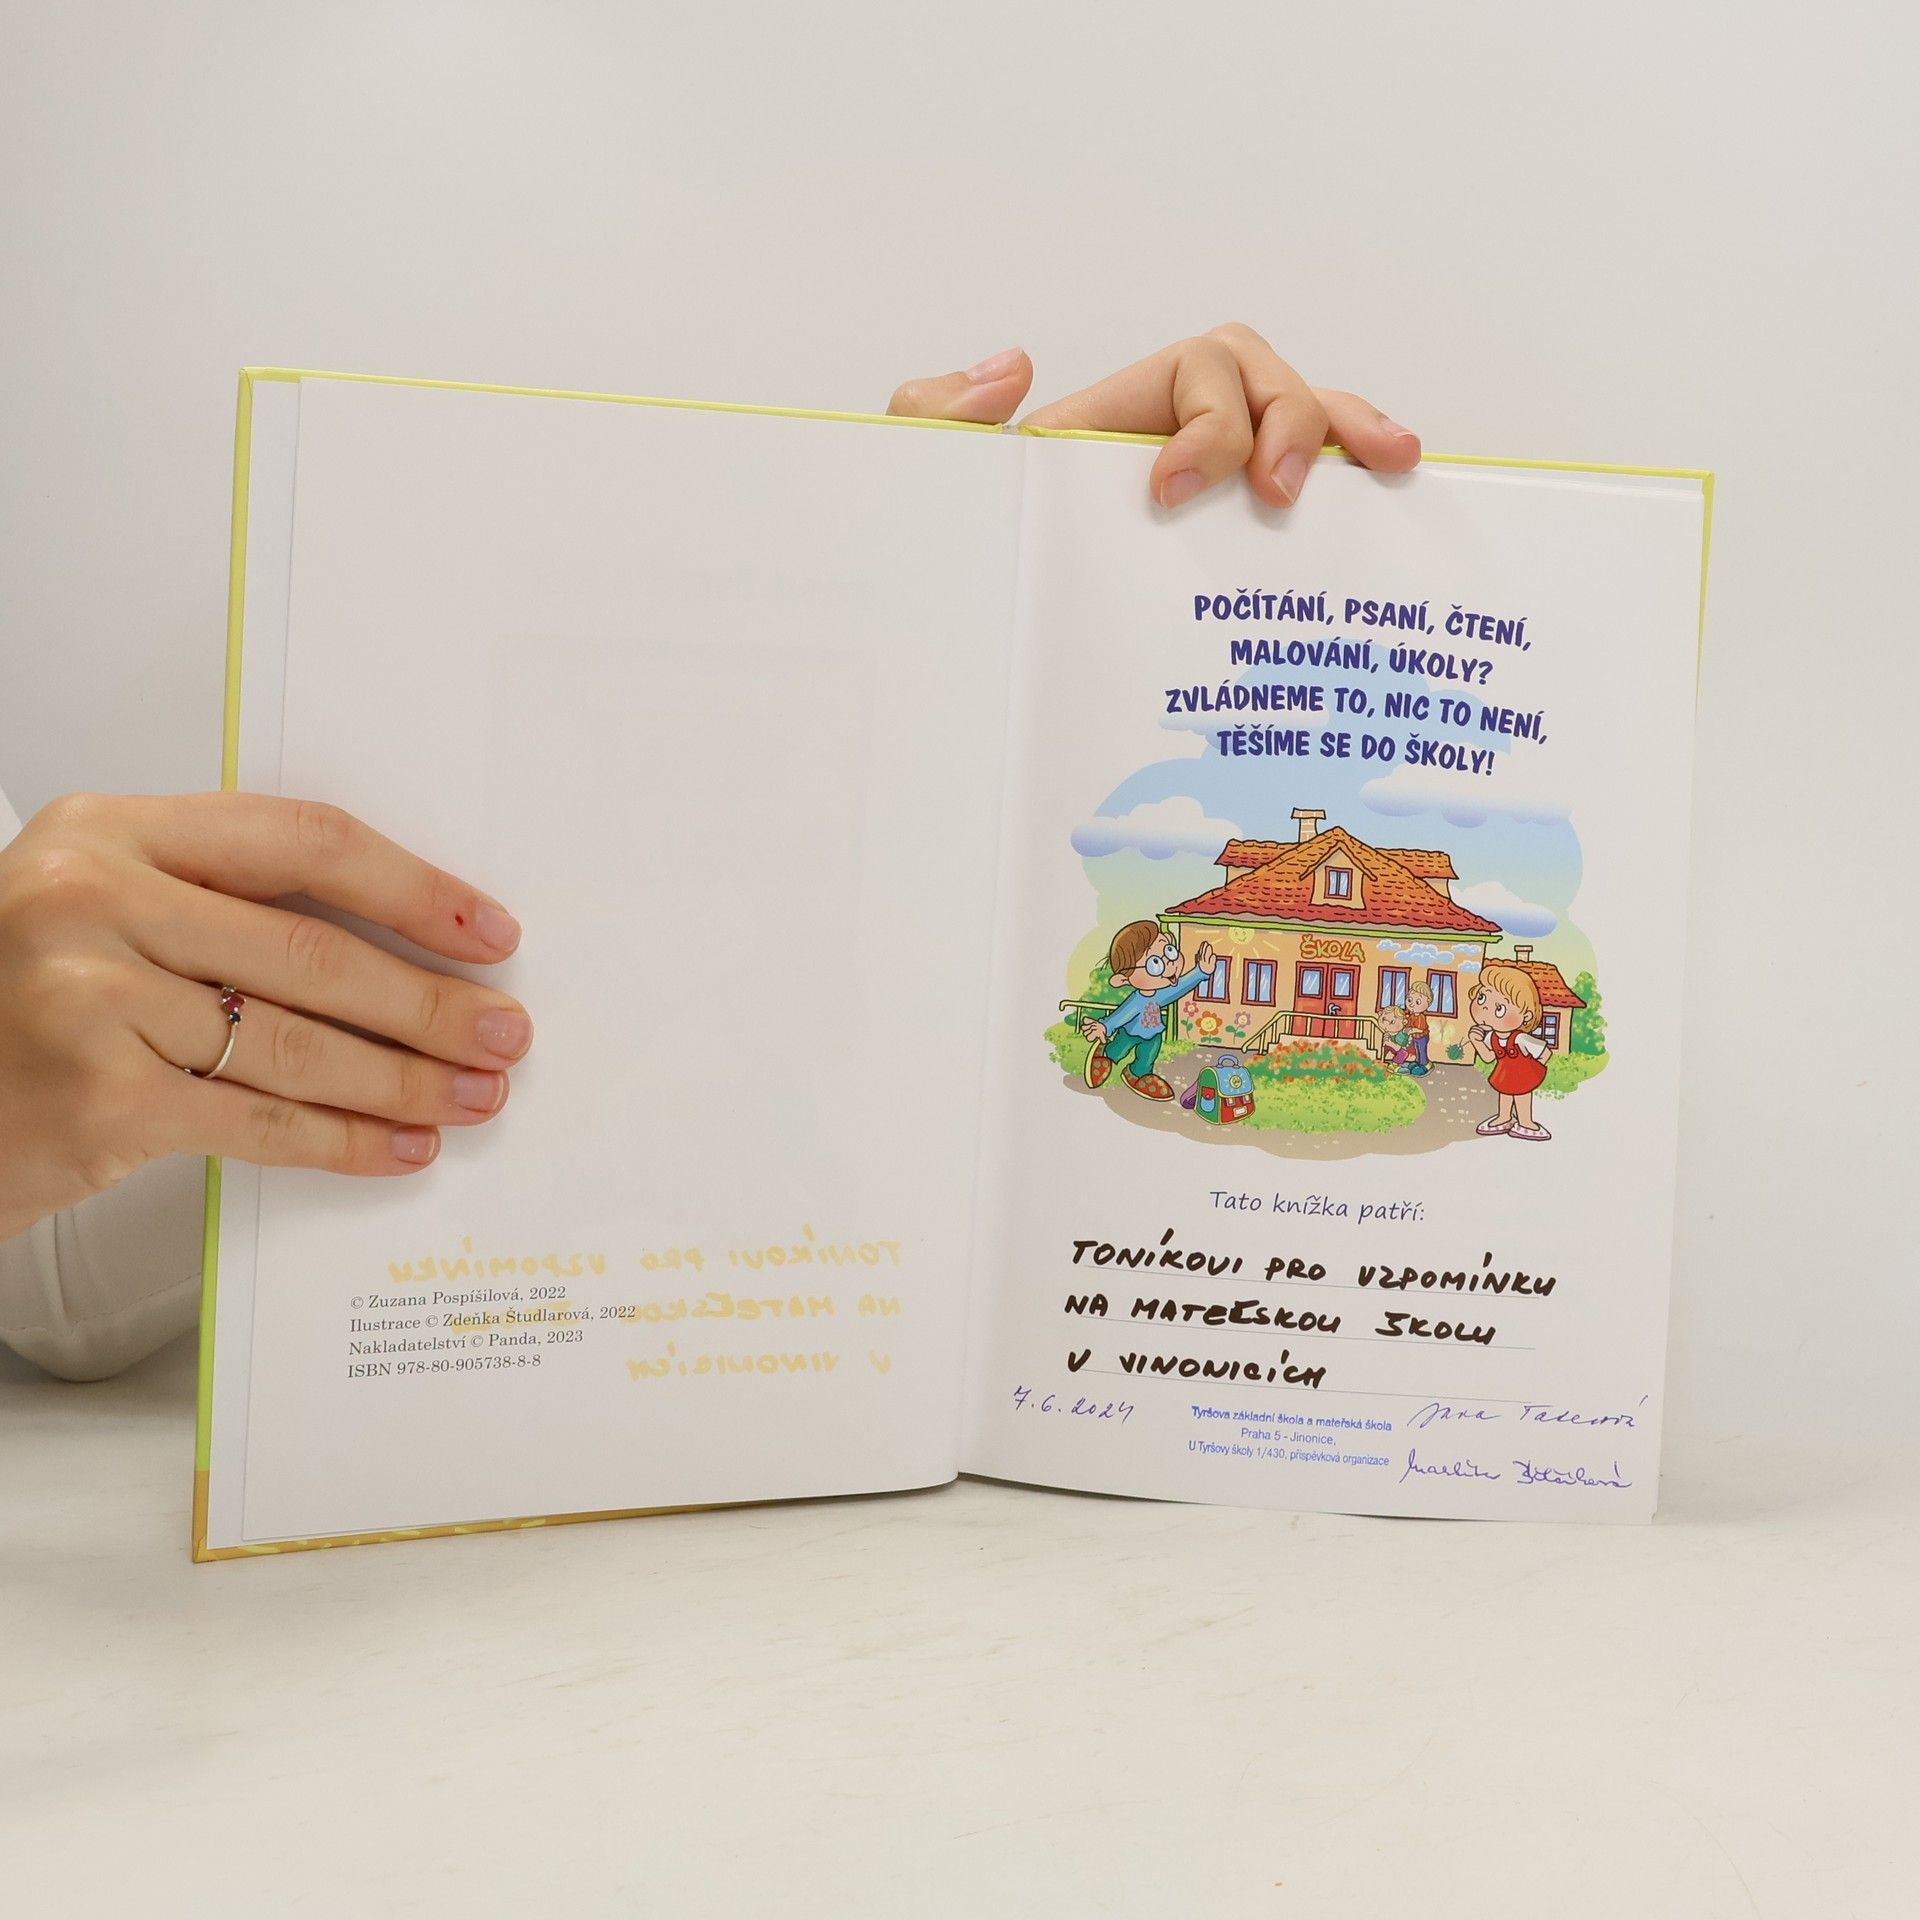 © Zuzana Pospíšilová, 2022
Ilustrace © Zdeňka Študlarová, 2022
Nakladatelství © Panda, 2023
ISBN 978-80-905738-8-8
POČÍTÁNÍ, PSANÍ, ČTENÍ,
MALOVÁNÍ, ÚKOLY?
ZVLÁDNEME TO, NIC TO NENÍ,
TĚŠÍME SE DO ŠKOLY!
ŠKOLA
Tato knížka patří:
TONÍKOVI PRO VZPOMÍNKU
NA MATEŘSKOU ŠKOLU
V VINONICÍCH
7.6.2024
Tyršova základní škola a mateřská škola
Praha 5 - Jinonice,
U Tyršovy školy 1/430, příspěvková organizace
Jana